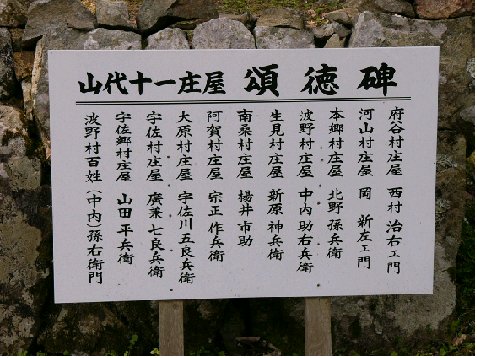 山代十一庄屋 頌徳碑
府谷村庄屋 西村 治右ェ門
河山村庄屋 岡 新左ェ門
本郷村庄屋 北野 孫兵衛
波野村庄屋 中内 助右兵衛
生見村庄屋 新原 神兵衛
南桑村庄屋 揚井 市助
阿賀村庄屋 宗正 作兵衛
大原村庄屋 宇佐川 五良兵衛
宇佐村庄屋 廣兼 七良兵衛
宇佐郷村庄屋 山田 平兵衛
波野村百姓 (中内)孫右衛門